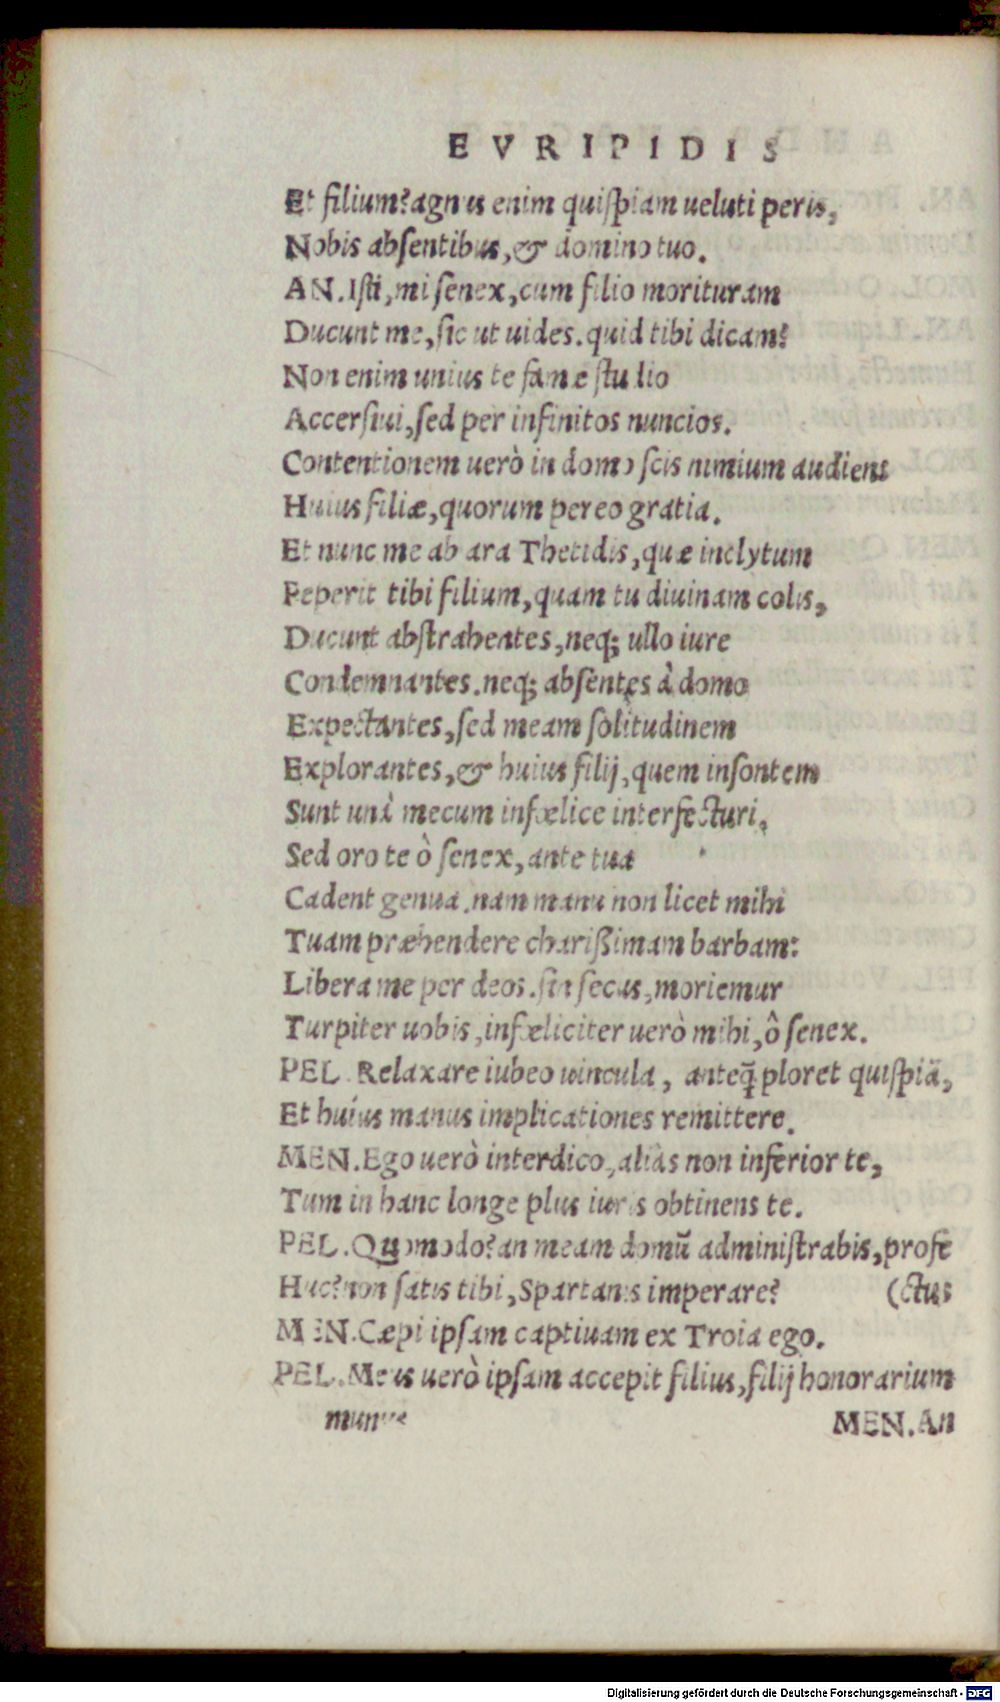 EVRIPIDIS
Et filium? agnus enim quiſpiam ueluti peris,
Nobis abſentibus, & domino tuo.
AN. Iſti, mi ſenex, cum filio morituram
Ducunt me, ſic ut uides. quid tibi dicam?
Non enim unius te famæ ſtudio
Accerſiui, ſed per infinitos nuncios.
Contentionem uerò in domo ſcis nimium audiens
Huius filiæ, quorum pereo gratia.
Et nunc me ab ara Thetidis, quæ inclytum
Peperit tibi filium, quam tu diuinam colis,
Ducunt abſtrahentes, neq; ullo iure
Condemnantes. neq; abſentes à domo
Expectantes, ſed meam ſolitudinem
Explorantes, & huius filij, quem inſontem
Sunt unà mecum infœlice interfecturi.
Sed oro te ò ſenex, ante tua
Cadent genua. nam manu non licet mihi
Tuam præhendere charißimam barbam:
Libera me per deos. ſin ſecus, moriemur
Turpiter uobis, infœliciter uerò mihi, ô ſenex.
PEL. Relaxare iubeo uincula, anteq̃ ploret quiſpiã,
Et huius manus implicationes remittere.
MEN. Ego uerò interdico, aliâs non inferior te,
Tum in hanc longe plus iuris obtinens te.
PEL. Quomodo? an meam domũ adminiſtrabis, profe
Huc? non ſatis tibi, Spartanis imperare? (ctus
MEN. Cæpi ipſam captiuam ex Troia ego.
PEL. Meus uerò ipſam accepit filius, filij honorarium
munus MEN. An
Digitalisierung gefördert durch die Deutsche Forschungsgemeinschaft - DFG